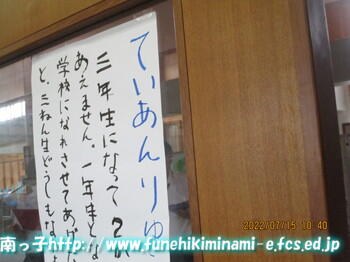 ていあんりゆ
三年生になって2か
あえません。一年生とな
学校になれさせてあげ
と、三ねん生どうしもな
2022/07/15 10:40
南っ子http://www.funehikiminami-e.fcs.ed.jp